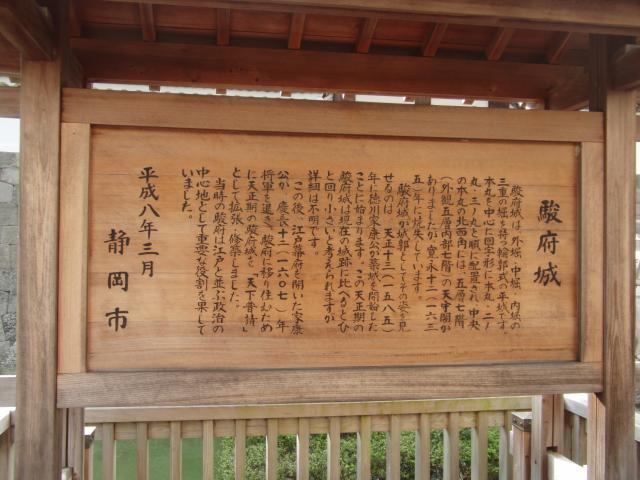 駿府城
駿府城は、外堀、中堀、内堀の
三重の堀を持つ輪郭式の平城です。
本丸を中心に回字形に本丸、二ノ
丸、三ノ丸と順に配置され、中央
の本丸の北西角には、五層七階
(外観五層内部七階)の天守閣が
ありましたが、寛永十二(一六三
五)年に焼失しています。
駿府城が城郭としてその姿を見
せるのは、天正十三(一五八五)
年に徳川家康公が築城を開始した
ことに始まります。この天正期の
駿府城は現在の城跡に比べるとひ
と回り小さいと考えられますが
詳細は不明です。
この後、江戸幕府を開いた家康
公が、慶長十二(一六〇七)年
将軍を退き、駿府に移り住むため
に天正期の駿府城を「天下普請」
として拡張・修築しました。
当時の駿府は江戸と並ぶ政治の
中心地として重要な役割を果して
いました。
平成八年三月
静岡市